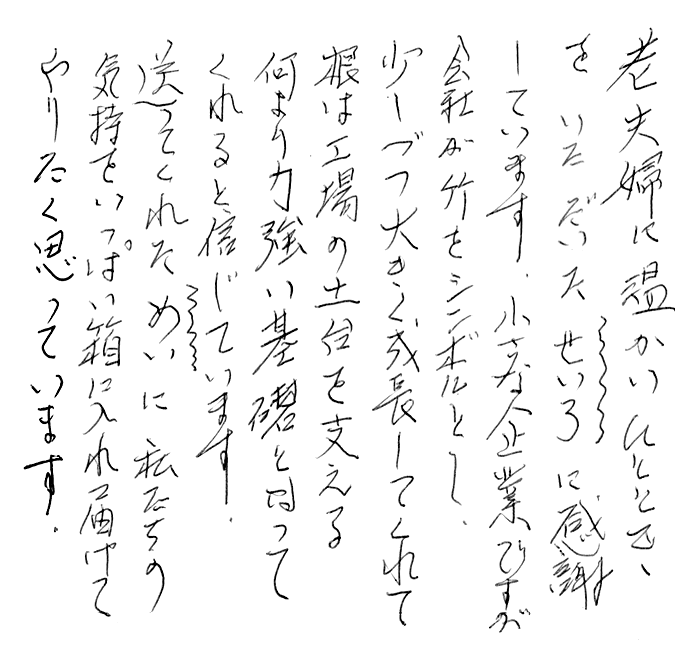 老夫婦に温かいひとときを
いただいたせいろに感謝
しています。小さな企業ですが
会社が竹をシンボルとし、
少しづつ大きく成長してくれて
根は工場の土台を支える
何より力強い基礎と因って
くれると信じています。
送ってくれためいに私たちの
気持をいっぱい箱に入れ届けて
やりたく思っています。